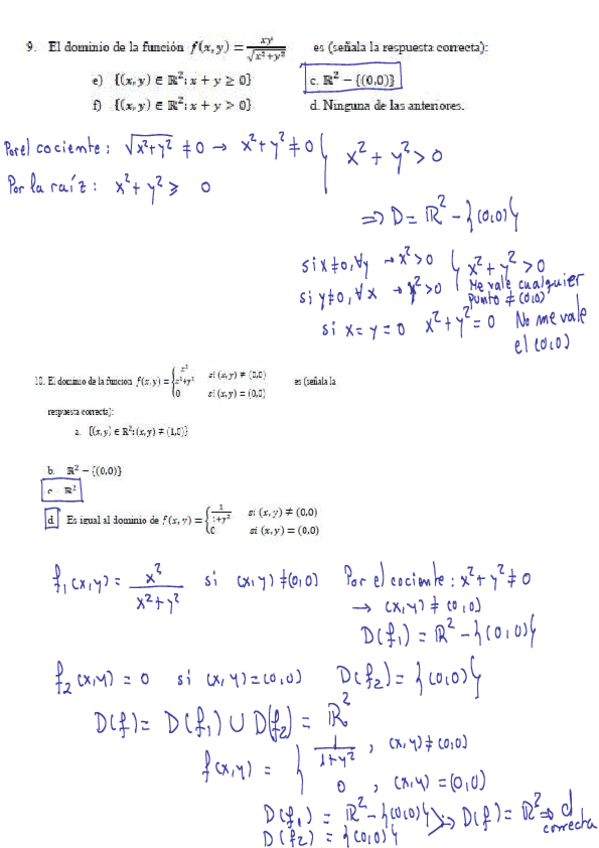 9. El dominio de la función f(x,y) = xy/√(x²+y²) es (señala la respuesta correcta):
e) {(x,y) ∈ ℝ²: x + y ≥ 0} c. ℝ² − {(0,0)}
f) {(x,y) ∈ ℝ²: x + y > 0} d. Ninguna de las anteriores.
Por el cociente: √(x²+y²) ≠ 0 → x²+y² ≠ 0 } x²+y² > 0
Por la raíz: x²+y² ⩾ 0
⇒ D = ℝ² − {(0,0)}
si x≠0, ∀y → x²>0 } x²+y²>0
si y≠0, ∀x → y²>0 } Me vale cualquier punto ≠ (0,0)
si x=y=0 x²+y²=0 No me vale
el (0,0)
10. El dominio de la función f(x,y) = { x³/(x²+y²) si (x,y) ≠ (0,0)
0 si (x,y) = (0,0) es (señala la
respuesta correcta):
a. {(x,y) ∈ ℝ²: (x,y) ≠ (1,0)}
b. ℝ² − {(0,0)}
c. ℝ²
d. Es igual al dominio de f(x,y) = { 1/(1+y²) si (x,y) ≠ (0,0)
0 si (x,y) = (0,0)
f₁(x,y) = x³/(x²+y²) si (x,y) ≠ (0,0) Por el cociente: x²+y² ≠ 0
→ (x,y) ≠ (0,0)
D(f₁) = ℝ² − {(0,0)}
f₂(x,y) = 0 si (x,y) = (0,0) D(f₂) = {(0,0)}
D(f) = D(f₁) ∪ D(f₂) = ℝ²
f(x,y) = { 1/(1+y²), (x,y) ≠ (0,0)
0, (x,y) = (0,0)
D(f₁) = ℝ² − {(0,0)} } ⇒ D(f) = ℝ² ⇒ d correcta
D(f₂) = {(0,0)}